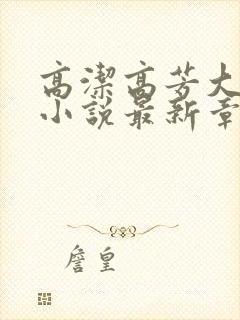 高潔高芳大
小說最新章
詹皇